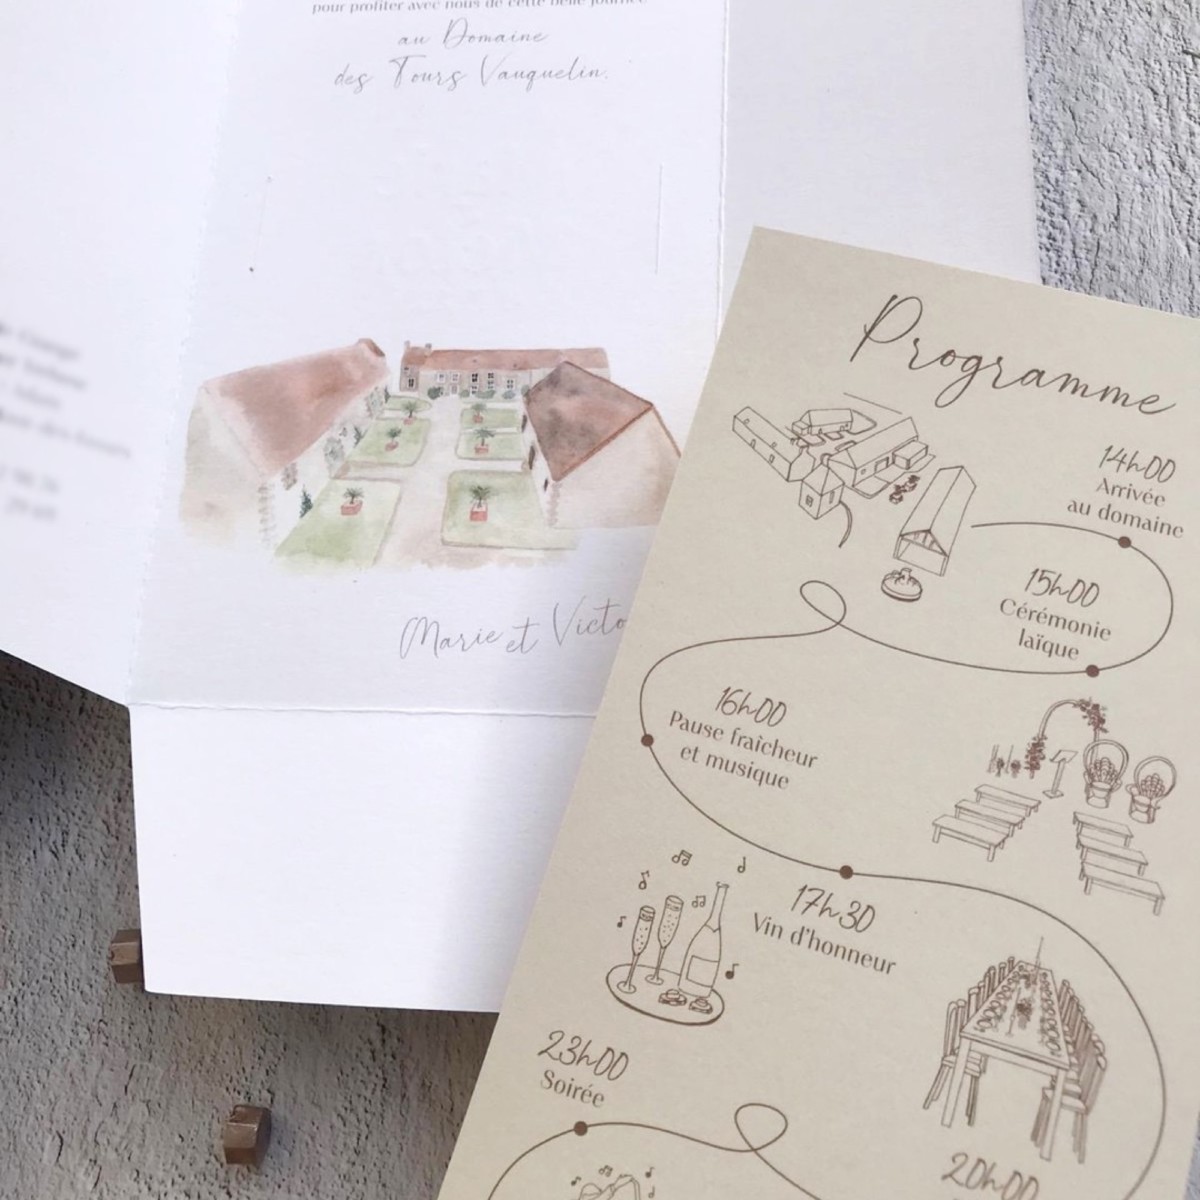 pour profiter avec nous de cette belle journée
au Domaine
des Tours Vauquelin.
Marie et Victo
Programme
14h00
Arrivée
au domaine
15h00
Cérémonie
laïque
16h00
Pause fraîcheur
et musique
17h30
Vin d'honneur
23h00
Soirée
20h00